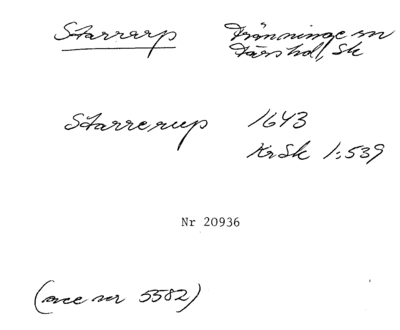 Starrarp Tranninge sn
Färs hd, Sk
Starrerup 1643
KrSk 1:539
Nr 20936
(acc nr 5582)